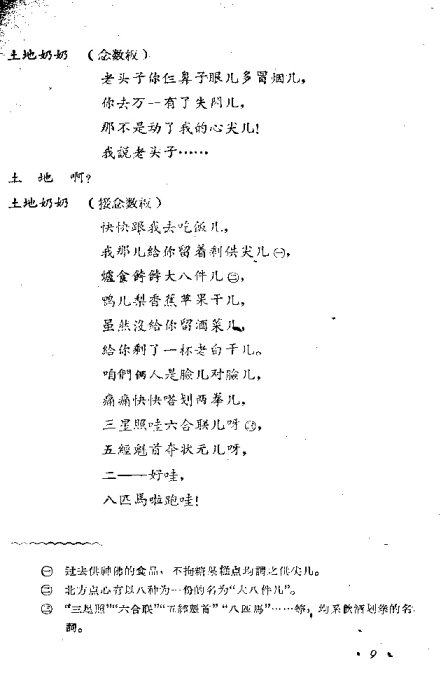 土地奶奶 (念数板)
老头子你仨鼻子眼儿多冒烟儿，
你去万一有了失闪儿，
那不是动了我的心尖儿!
我説老头子……
土 地 啊?
土地奶奶 (接念数板)
快快跟我去吃饭儿，
我那儿給你留着剩供尖儿㊀，
爐食餑餑大八件儿㊁，
鸭儿梨香蕉苹果干儿，
虽然沒給你留酒菜儿，
給你剩了一杯老白干儿。
咱們俩人是臉儿对臉儿，
痛痛快快喒划两拳儿，
三星照哇六合联儿呀㊂，
五經魁首夺状元儿呀，
二——好哇，
八匹馬啦跑哇!
㊀ 过去供神佛的食品，不拘糖果糕点均謂之供尖儿。
㊁ 北方点心有以八种为一份的名为“大八件儿”。
㊂ “三星照”“六合联”“五經魁首”“八匹馬”……等，均系飲酒划拳的名
詞。
• 9 •